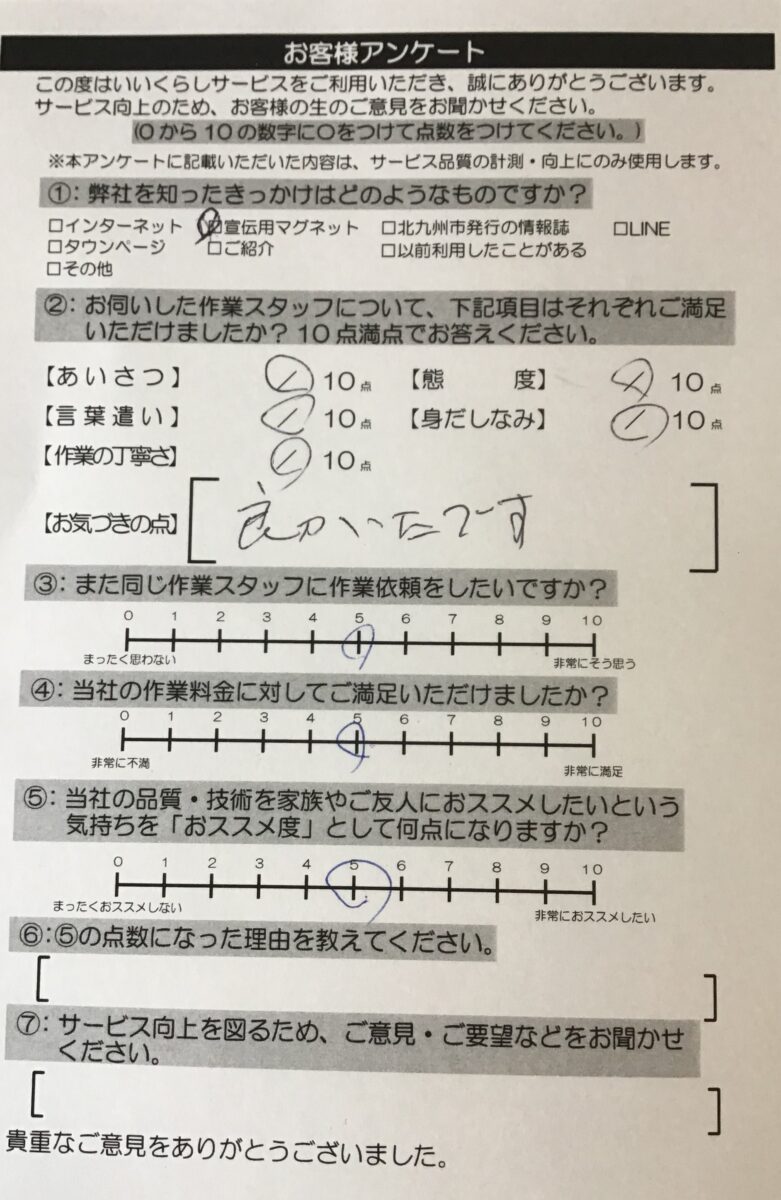 お客様アンケート
この度はいいくらしサービスをご利用いただき、誠にありがとうございます。
サービス向上のため、お客様の生のご意見をお聞かせください。
(0から10の数字に〇をつけて点数をつけてください。)
※本アンケートに記載いただいた内容は、サービス品質の計測・向上にのみ使用します。
①：弊社を知ったきっかけはどのようなものですか？
□インターネット □宣伝用マグネット □北九州市発行の情報誌 □LINE
□タウンページ □ご紹介 □以前利用したことがある
□その他
②：お伺いした作業スタッフについて、下記項目はそれぞれご満足
いただけましたか？10点満点でお答えください。
【あいさつ】 10点 【態度】 10点
【言葉遣い】 10点 【身だしなみ】 10点
【作業の丁寧さ】 10点
【お気づきの点】 良かいたです
③：また同じ作業スタッフに作業依頼をしたいですか？
0 1 2 3 4 5 6 7 8 9 10
まったく思わない 非常にそう思う
④：当社の作業料金に対してご満足いただけましたか？
0 1 2 3 4 5 6 7 8 9 10
非常に不満 非常に満足
⑤：当社の品質・技術を家族やご友人におススメしたいという
気持ちを「おススメ度」として何点になりますか？
0 1 2 3 4 5 6 7 8 9 10
まったくおススメしない 非常におススメしたい
⑥：⑤の点数になった理由を教えてください。
⑦：サービス向上を図るため、ご意見・ご要望などをお聞かせ
ください。
貴重なご意見をありがとうございました。